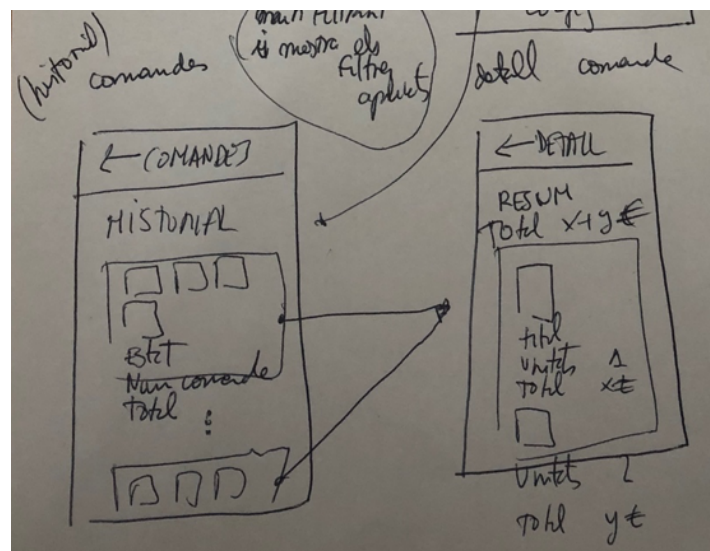 (historial)
comandes
si mostra els
filtres
aplicats
detall comanda
← COMANDES
HISTORIAL
Estat
Num comanda
Total
← DETALL
RESUM
Total x+y €
títol
Unitats 1
Total x€
Unitats 2
Total y €